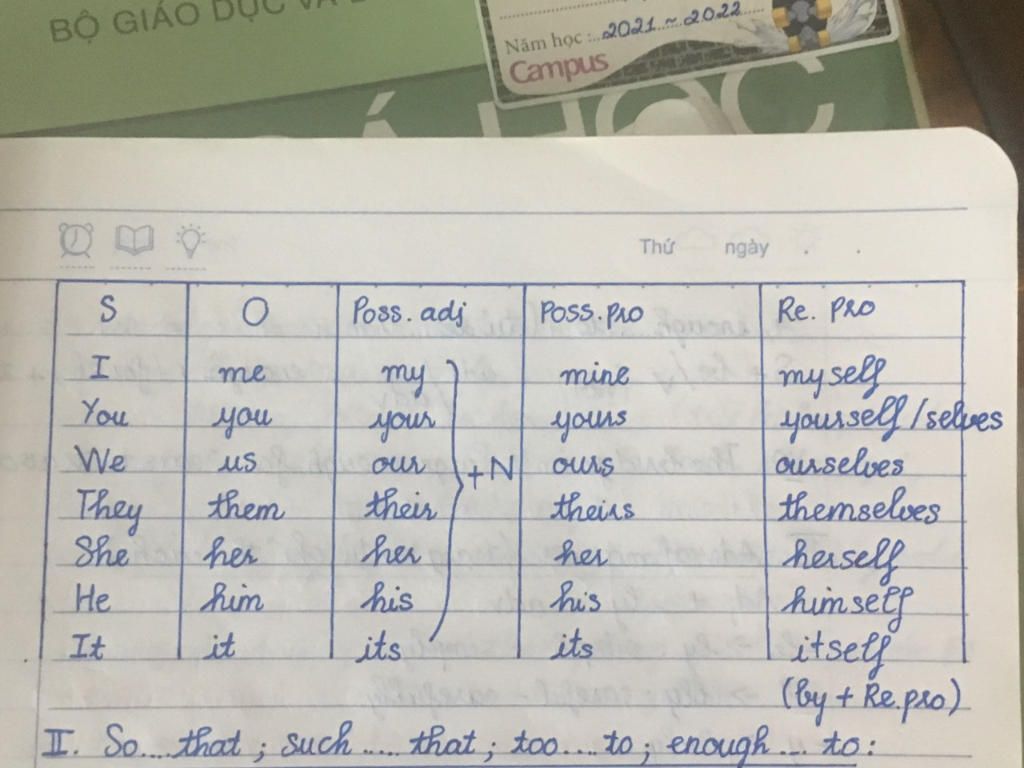 BỘ GIÁO DỤC VÀ
Năm học :...2021 ~ 2022
Campus
HỌC
Thứ ngày . .
S O Poss. adj Poss. pro Re. pro
I me my mine myself
You you your yours yourself/selves
We us our + N ours ourselves
They them their theirs themselves
She her her her herself
He him his his himself
It it its its itself
(by + Re.pro)
II. So....that ; such .... that ; too... to ; enough ... to :